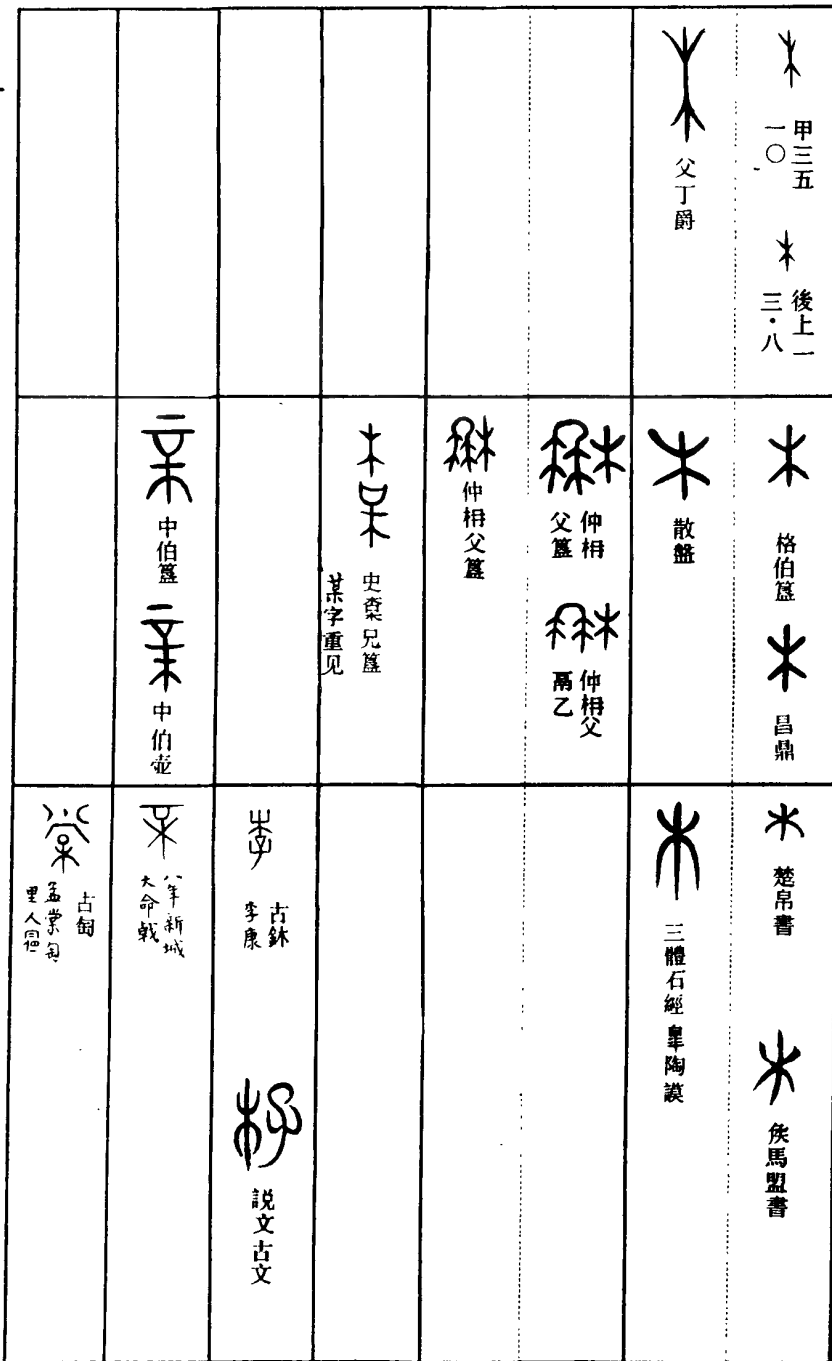 甲三五
一〇
後上一
三·八
父丁爵
格伯簋
昌鼎
散盤
仲枏
父簋
仲枏父
鬲乙
仲枏父簋
史𣐺兄簋
某字重见
中伯簋
中伯壶
楚帛書
矦馬盟書
三體石經 臯陶謨
古鉥
李康
説文古文
八年新城
大命戟
古匋
孟棠匋
里人